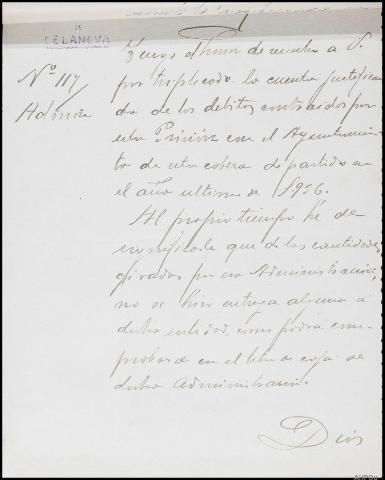 DE
CELANOVA
Nº 117
Admón
Tengo el honor de remitir a S.
por triplicado la cuenta justifica
da de los debitos contraidos por
esta Prisión con el Ayuntamien
to de esta cabeza de partido en
el año ultimo de 1936.
Al propio tiempo hé de
significarle que de las cantidades
giradas por esa Administración,
no se hizo entrega alguna á
dicha entidad, como podra com
probarse en el libro de caja de
dicha Administración.
Dios
AHPOu